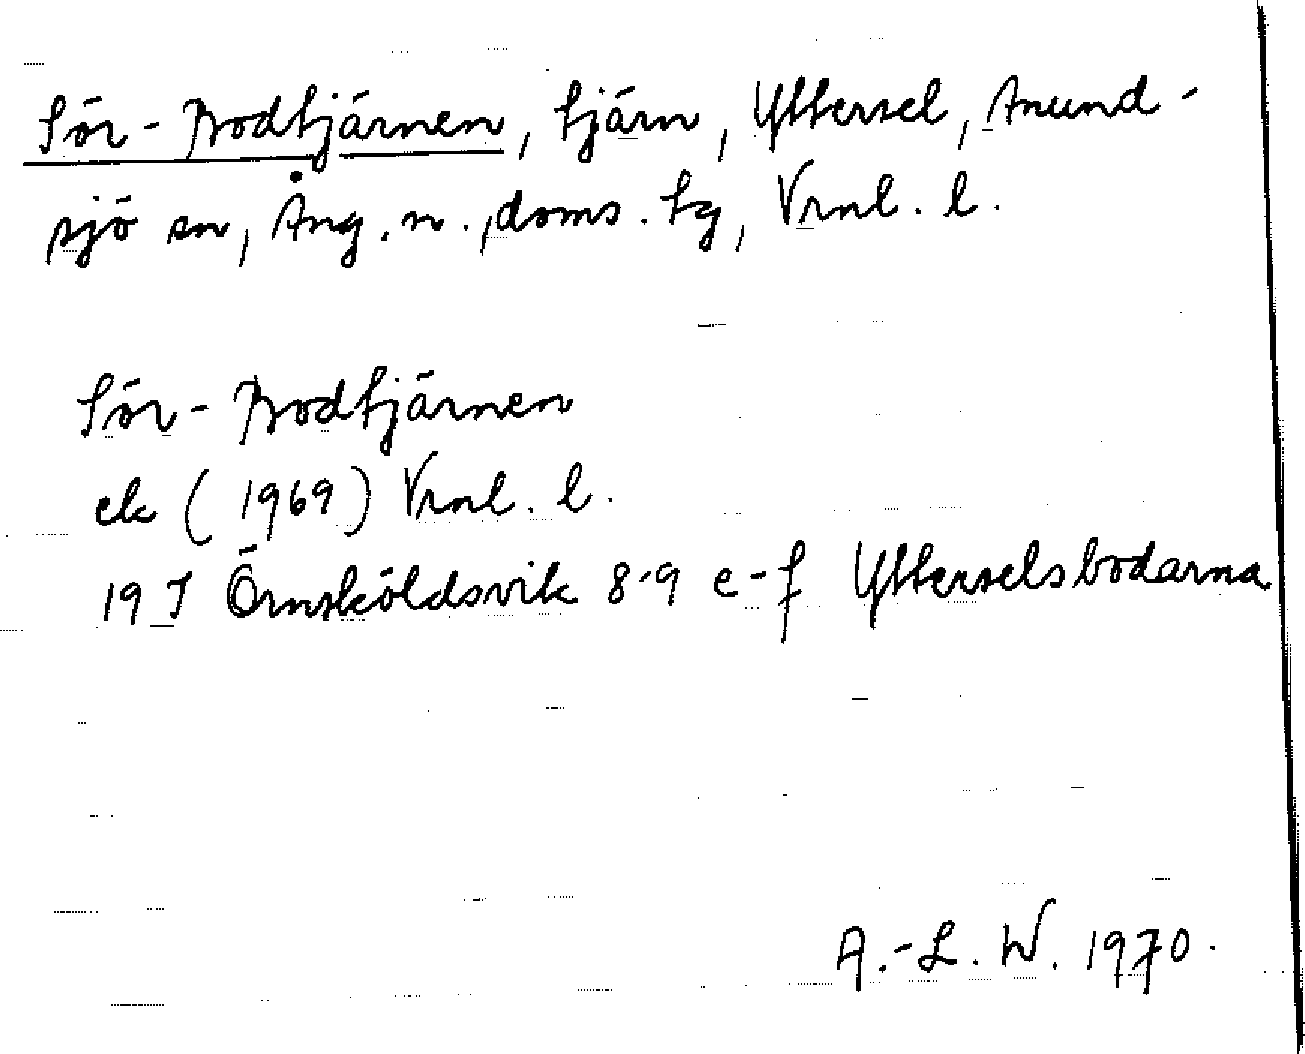 Sör-Brodtjärnen, tjärn, Yttersel, Anund-
sjö sn, Ång. n., doms. tg, Vrnl. l.
Sör-Brodtjärnen
ek (1969) Vrnl. l.
19 J Örnsköldsvik 8-9 e-f Ytterselsbodarna
A.-L. W. 1970.